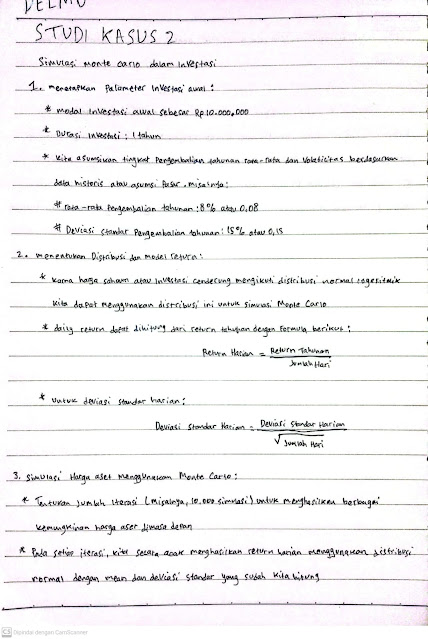 DELMO
STUDI KASUS 2
Simulasi monte carlo dalam Investasi
1. menetapkan Parameter Investasi awal :
* modal Investasi awal sebesar Rp 10.000.000
* Durasi Investasi : 1 tahun
* Kita asumsikan tingkat Pengembalian tahunan rata-rata dan Volatilitas berdasarkan
data historis atau asumsi Pasar, misalnya :
# rata-rata Pengembalian tahunan : 8% atau 0,08
# Deviasi standar Pengembalian tahunan : 15% atau 0,15
2. menentukan Distribusi dan model return :
* karna harga saham atau Investasi cenderung mengikuti distribusi normal logaritmik
kita dapat menggunakan distribusi ini untuk simulasi Monte Carlo
* daily return dapat dihitung dari return tahunan dengan Formula berikut :
Return Harian = Return Tahunan
Jumlah Hari
* Untuk deviasi standar harian :
Deviasi Standar Harian = Deviasi Standar Harian
√Jumlah Hari
3. Simulasi Harga aset Menggunakan Monte Carlo :
* Tentukan Jumlah Iterasi (misalnya, 10.000 simulasi) untuk menghasilkan berbagai
kemungkinan harga aset dimasa depan
* Pada setiap iterasi, kita secara acak menghasilkan return harian menggunakan distribusi
normal dengan mean dan deviasi standar yang sudah kita hitung
CS Dipindai dengan CamScanner